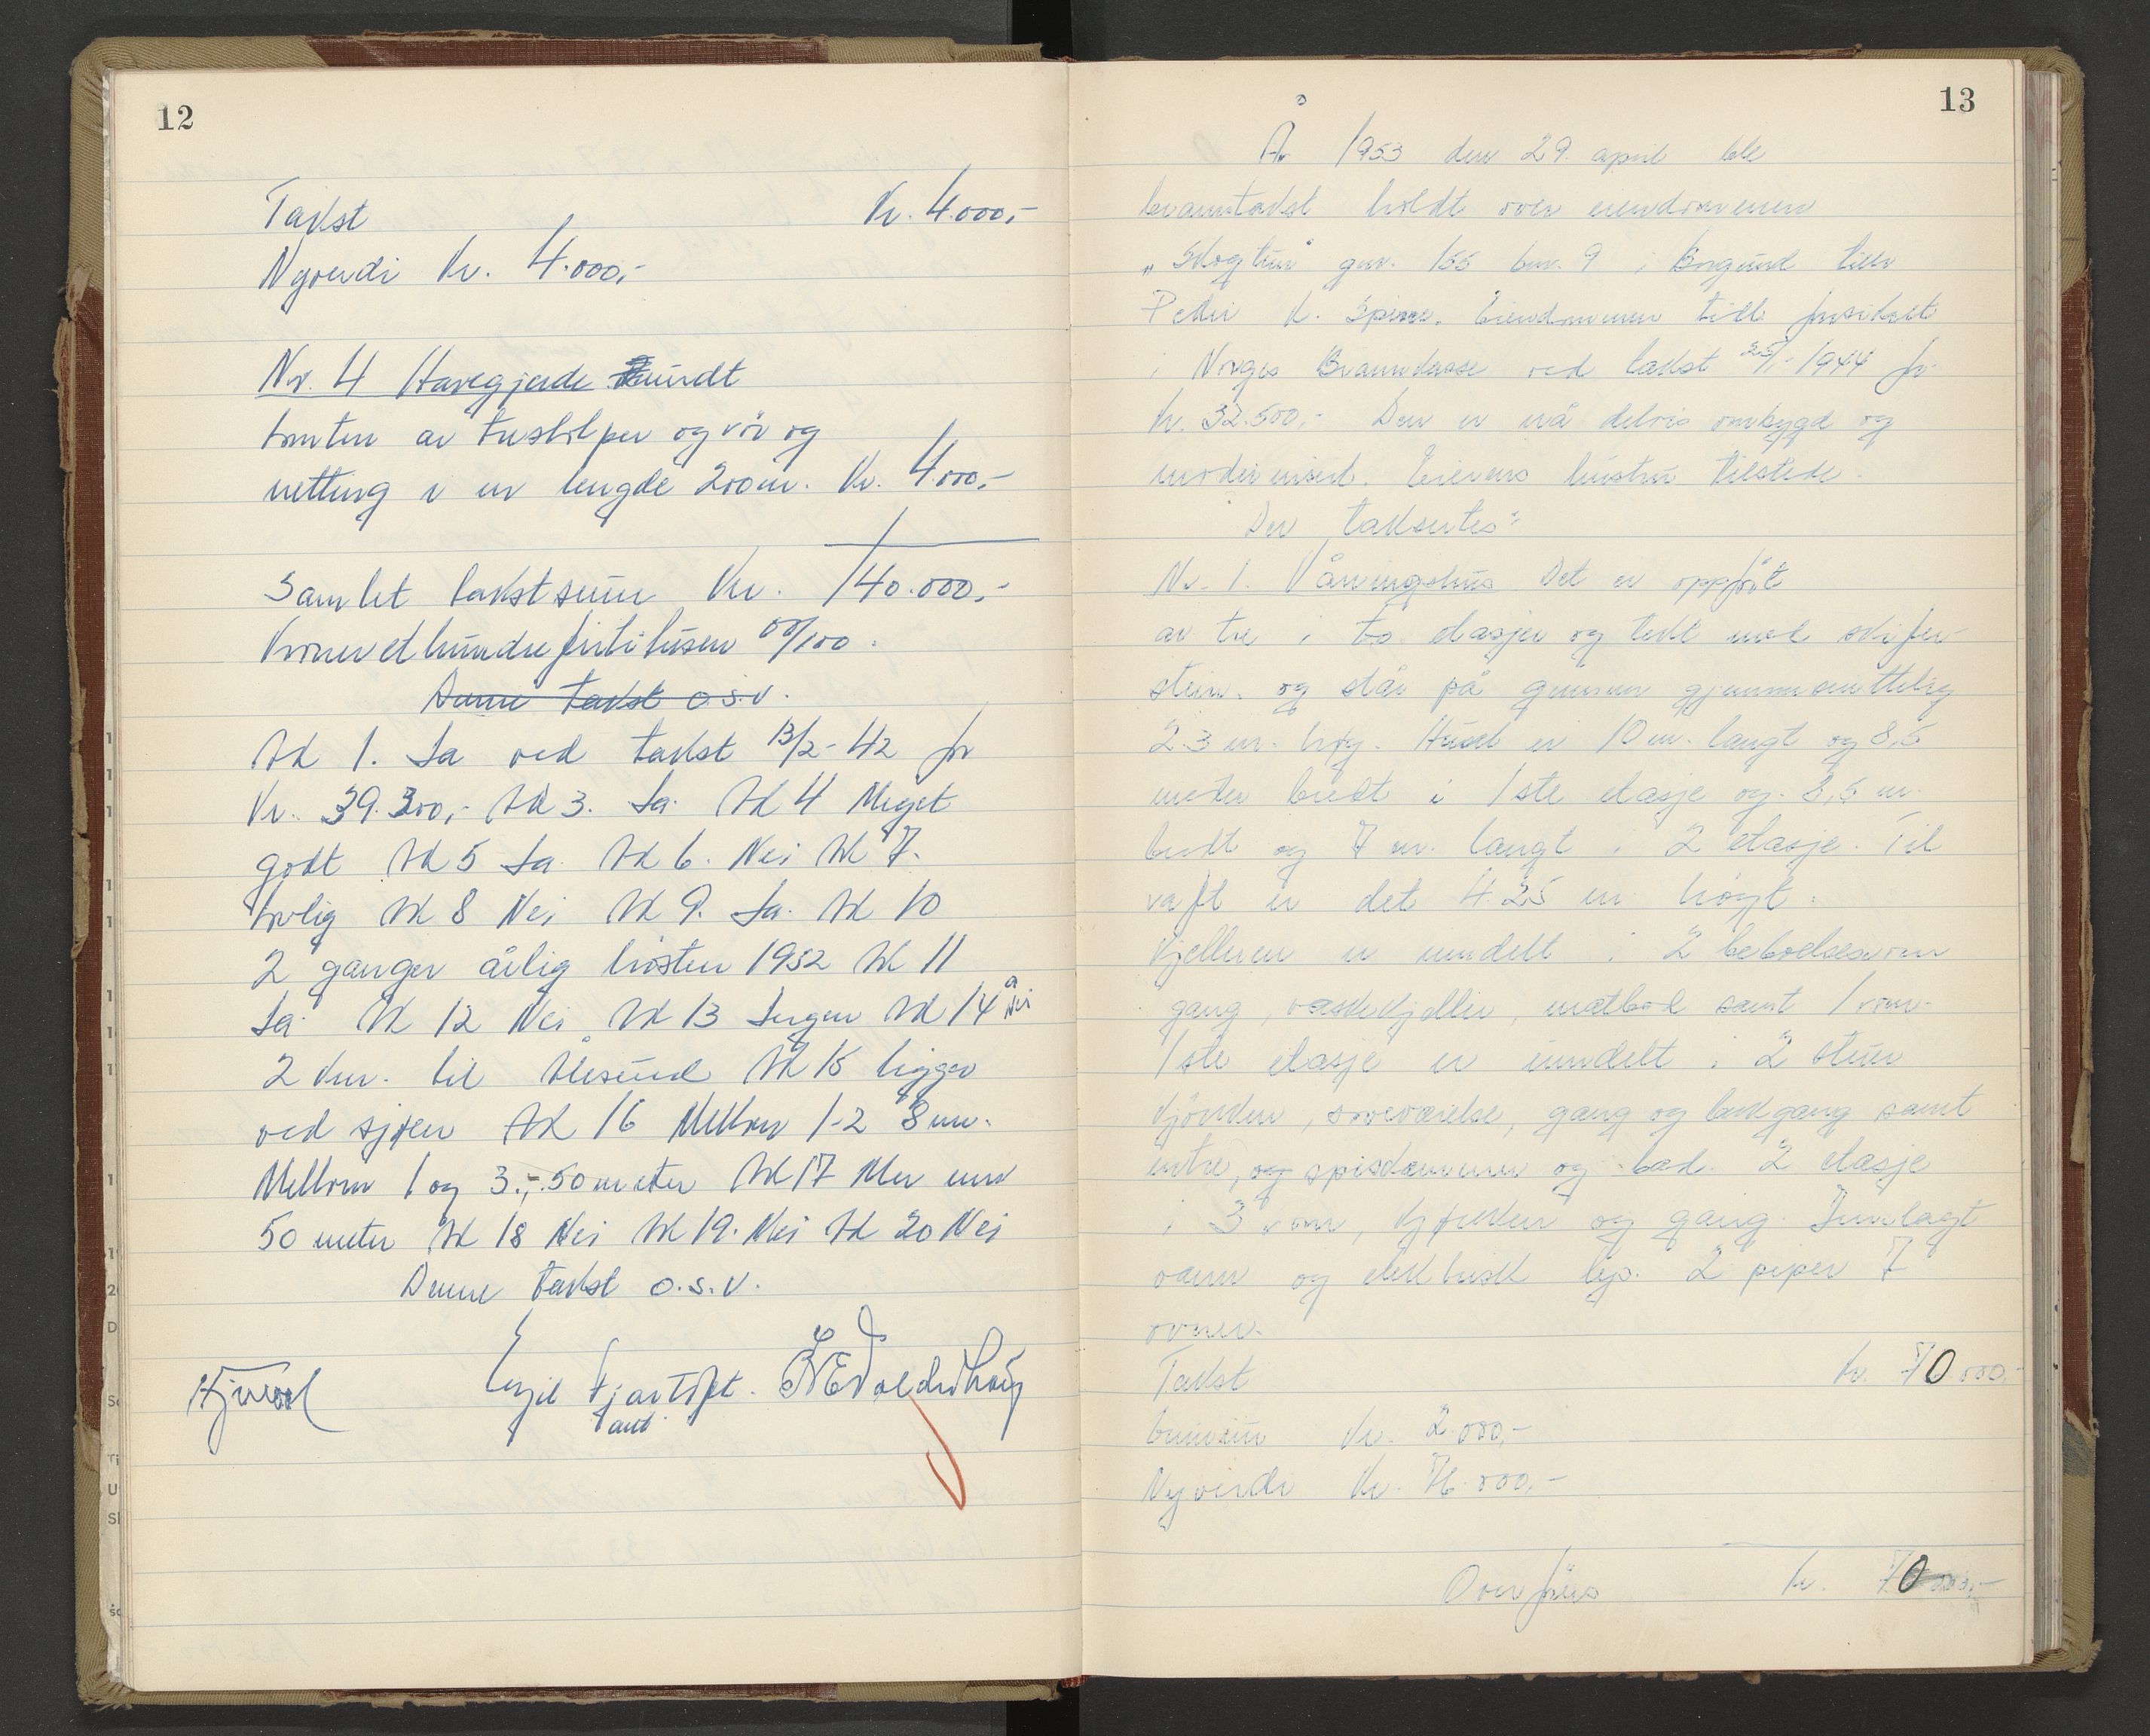 12
Takst Kr. 4.000,-
Nyverdi Kr. 4.000,-
Nr. 4 Havegjerde rundt
tomten av trestolper og rör og
netting i en lengde 200 m. Kr. 4.000,-
Samlet takstsum Kr. 140.000,-
Kroner et hundre førti tusen 00/100.
Denne takst o.s.v.
Ad 1. Ja ved takst 13/2-42 for
Kr. 39.300,- Ad 3. Ja. Ad 4 Meget
godt Ad 5 Ja. Ad 6. Nei Ad 7.
Ad 8 Nei Ad 9. Ja. Ad 10
2 ganger årlig hösten 1952 Ad 11
Ja Ad 12 Nei Ad 13 Ingen Ad 14 a Nei
2 km. til Ålesund Ad 15 ligger
ved sjøen Ad 16 Mellom 1-2 8 m.
Mellom 1 og 3.- 50 meter Ad 17 Mer enn
50 meter Ad 18 Nei Ad 19. Nei Ad 20 Nei
Denne takst o.s.v.
13
År 1953 den 29. april ble
branntakst holdt over eiendommen
„Skogtun" gnr. 155 bnr. 9 i Borgund tilh.
Peder K. Eiendommen till forsikret
i Norges Brannkasse ved takst 1944 for
kr. 32.500,- Den er nå delvis ombygd og
modernisert. Eierens hustru tilstede.
Der taksertes:
Nr. 1. Våningshus Det er oppført
av tre i to etasjer og tekt med skifer-
stein. og står på grunnmur gjennomsnittelig
2.3 m. høy. Huset er 10 m. langt og 8,5
meter bredt i 1ste etasje og 8,5 m.
bredt og 7 m. langt i 2 etasje. Til
raft er det 4.25 m högt.
Kjelleren er inndelt i 2 beboelsesrom
gang, vaskekjeller, matbod samt 1 rom.
1ste etasje er inndelt i 2 stuer
kjökken, soveværelse, gang og bakgang samt
entre, og spisekammer og bad. 2 etasje
i 3 rom, kjøkken og gang. Innlagt
vann og elektrisk lys. 2 piper 7
ovner.
Takst Kr. 70.000,-
Grunnmur Kr. 2.000,-
Nyverdi Kr. 76.000,-
Overføres kr. 70.000,-